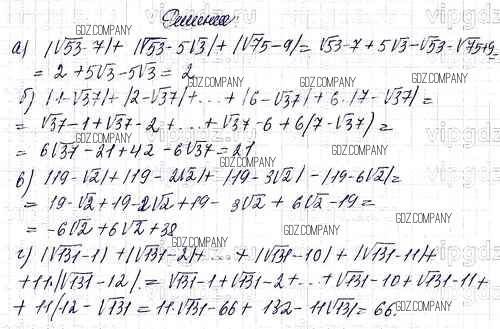 Решение
а) |√53-7|+ |√53-5√3|+|√75-9|= √53-7+5√3-√53-√75+9
= 2+5√3-5√3=2
б) |1-√37|+|2-√37|+...+|6-√37|+6·|7-√37|=
= √37-1+√37-2+...+√37-6+6(7-√37)=
= 6√37-21+42-6√37=21
в) |19-√2|+|19-2√2|+|19-3√2|-|19-6√2|=
= 19-√2+19-2√2+19-3√2+6√2-19=
= -6√2+6√2+38
г) |√131-1|+|√131-2|+...+|√131-10|+|√131-11|+
+11·|√131-12|=√131-1+√131-2+...+√131-10+√131-11+
+11|12-√131=11√131-66+132-11√131=66.
GDZ.COMPANY
vipgdz